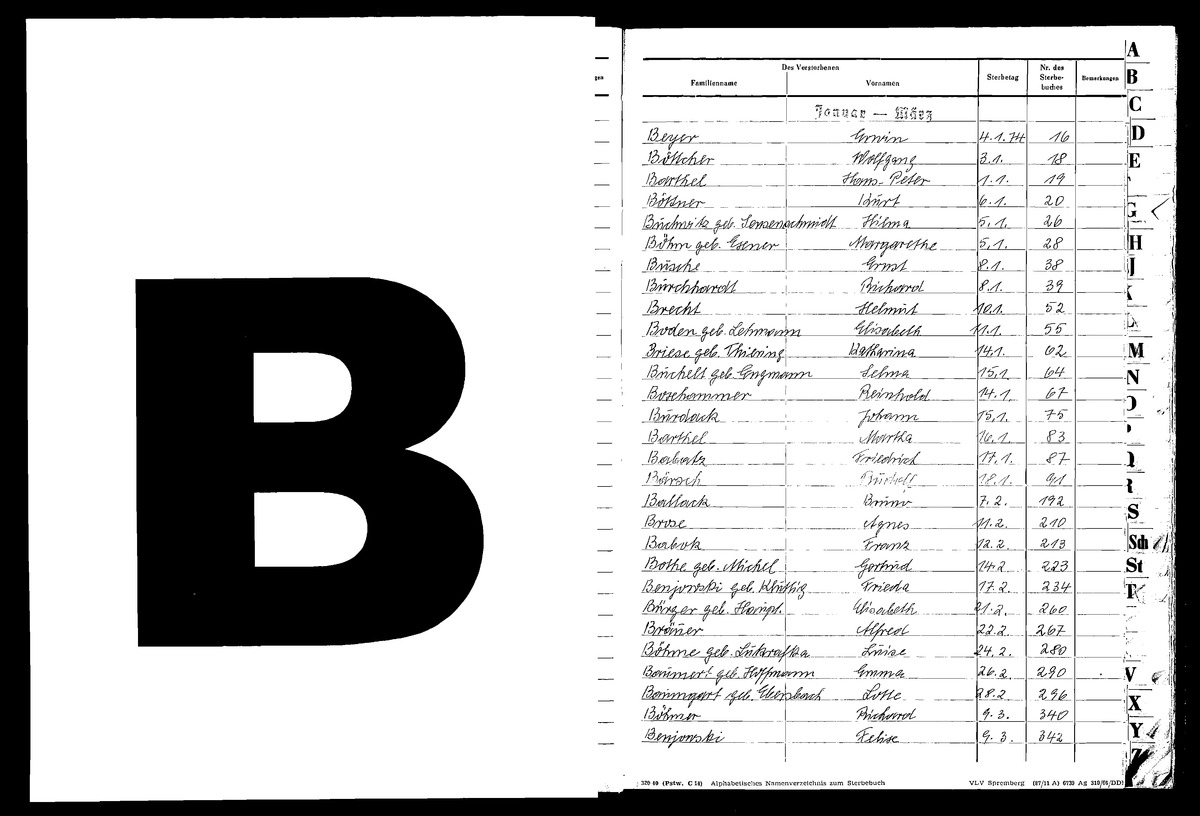 B
Des Verstorbenen
Familienname Vornamen Sterbetag Nr. des Sterbe-buches Bemerkungen
Januar — März
Beyer Erwin 4.1.74 16
Böttcher Wolfgang 3.1. 18
Barthel Hans-Peter 1.1. 19
Böttner Kurt 6.1. 20
Buchwitz geb. Sensenschmidt Hilma 5.1. 26
Böhm geb. Exner Margarethe 5.1. 28
Büsche Ernst 8.1. 38
Burchhardt Richard 8.1. 39
Brecht Helmut 10.1. 52
Boden geb. Lehmann Elisabeth 11.1. 55
Briese geb. Thiering Katharina 14.1. 62
Büchelt geb. Engmann Selma 15.1. 64
Boxhammer Reinhold 14.1. 67
Burdack Johann 15.1. 75
Barthel Martha 16.1. 83
Babatz Friedrich 17.1. 87
Bärsch 18.1. 91
Ballack Bruno 7.2. 192
Brose Agnes 11.2. 210
Babok Franz 12.2. 213
Bothe geb. Michel Gertrud 14.2 223
Benjowski geb. Kluttig Frieda 17.2. 234
Bürger geb. Haupt. Elisabeth 21.2. 260
Bräuer Alfred 22.2. 267
Böhme geb. Lukrafka Luise 24.2. 280
Baumert geb. Hoffmann Emma 26.2. 290
Baumgart geb. Ebersbach Lotte 28.2 296
Böhmer Richard 9.3. 340
Benjowski Felix 9.3. 342
320 40 (Pstw. C 14) Alphabetisches Namenverzeichnis zum Sterbebuch VLV Spremberg (87/11 A) 6739 Ag 310/66/DD
A
B
C
D
E
G
H
J
M
N
O
Q
R
S
Sch
St
T
V
X
Y
Z